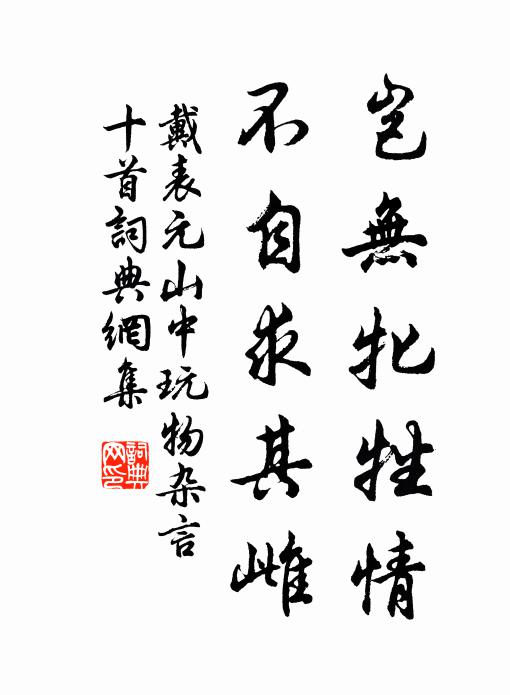 豈無牝牲情
不自求其雌
戴表元山中玩物杂言
十首詞典網集
詞典网印